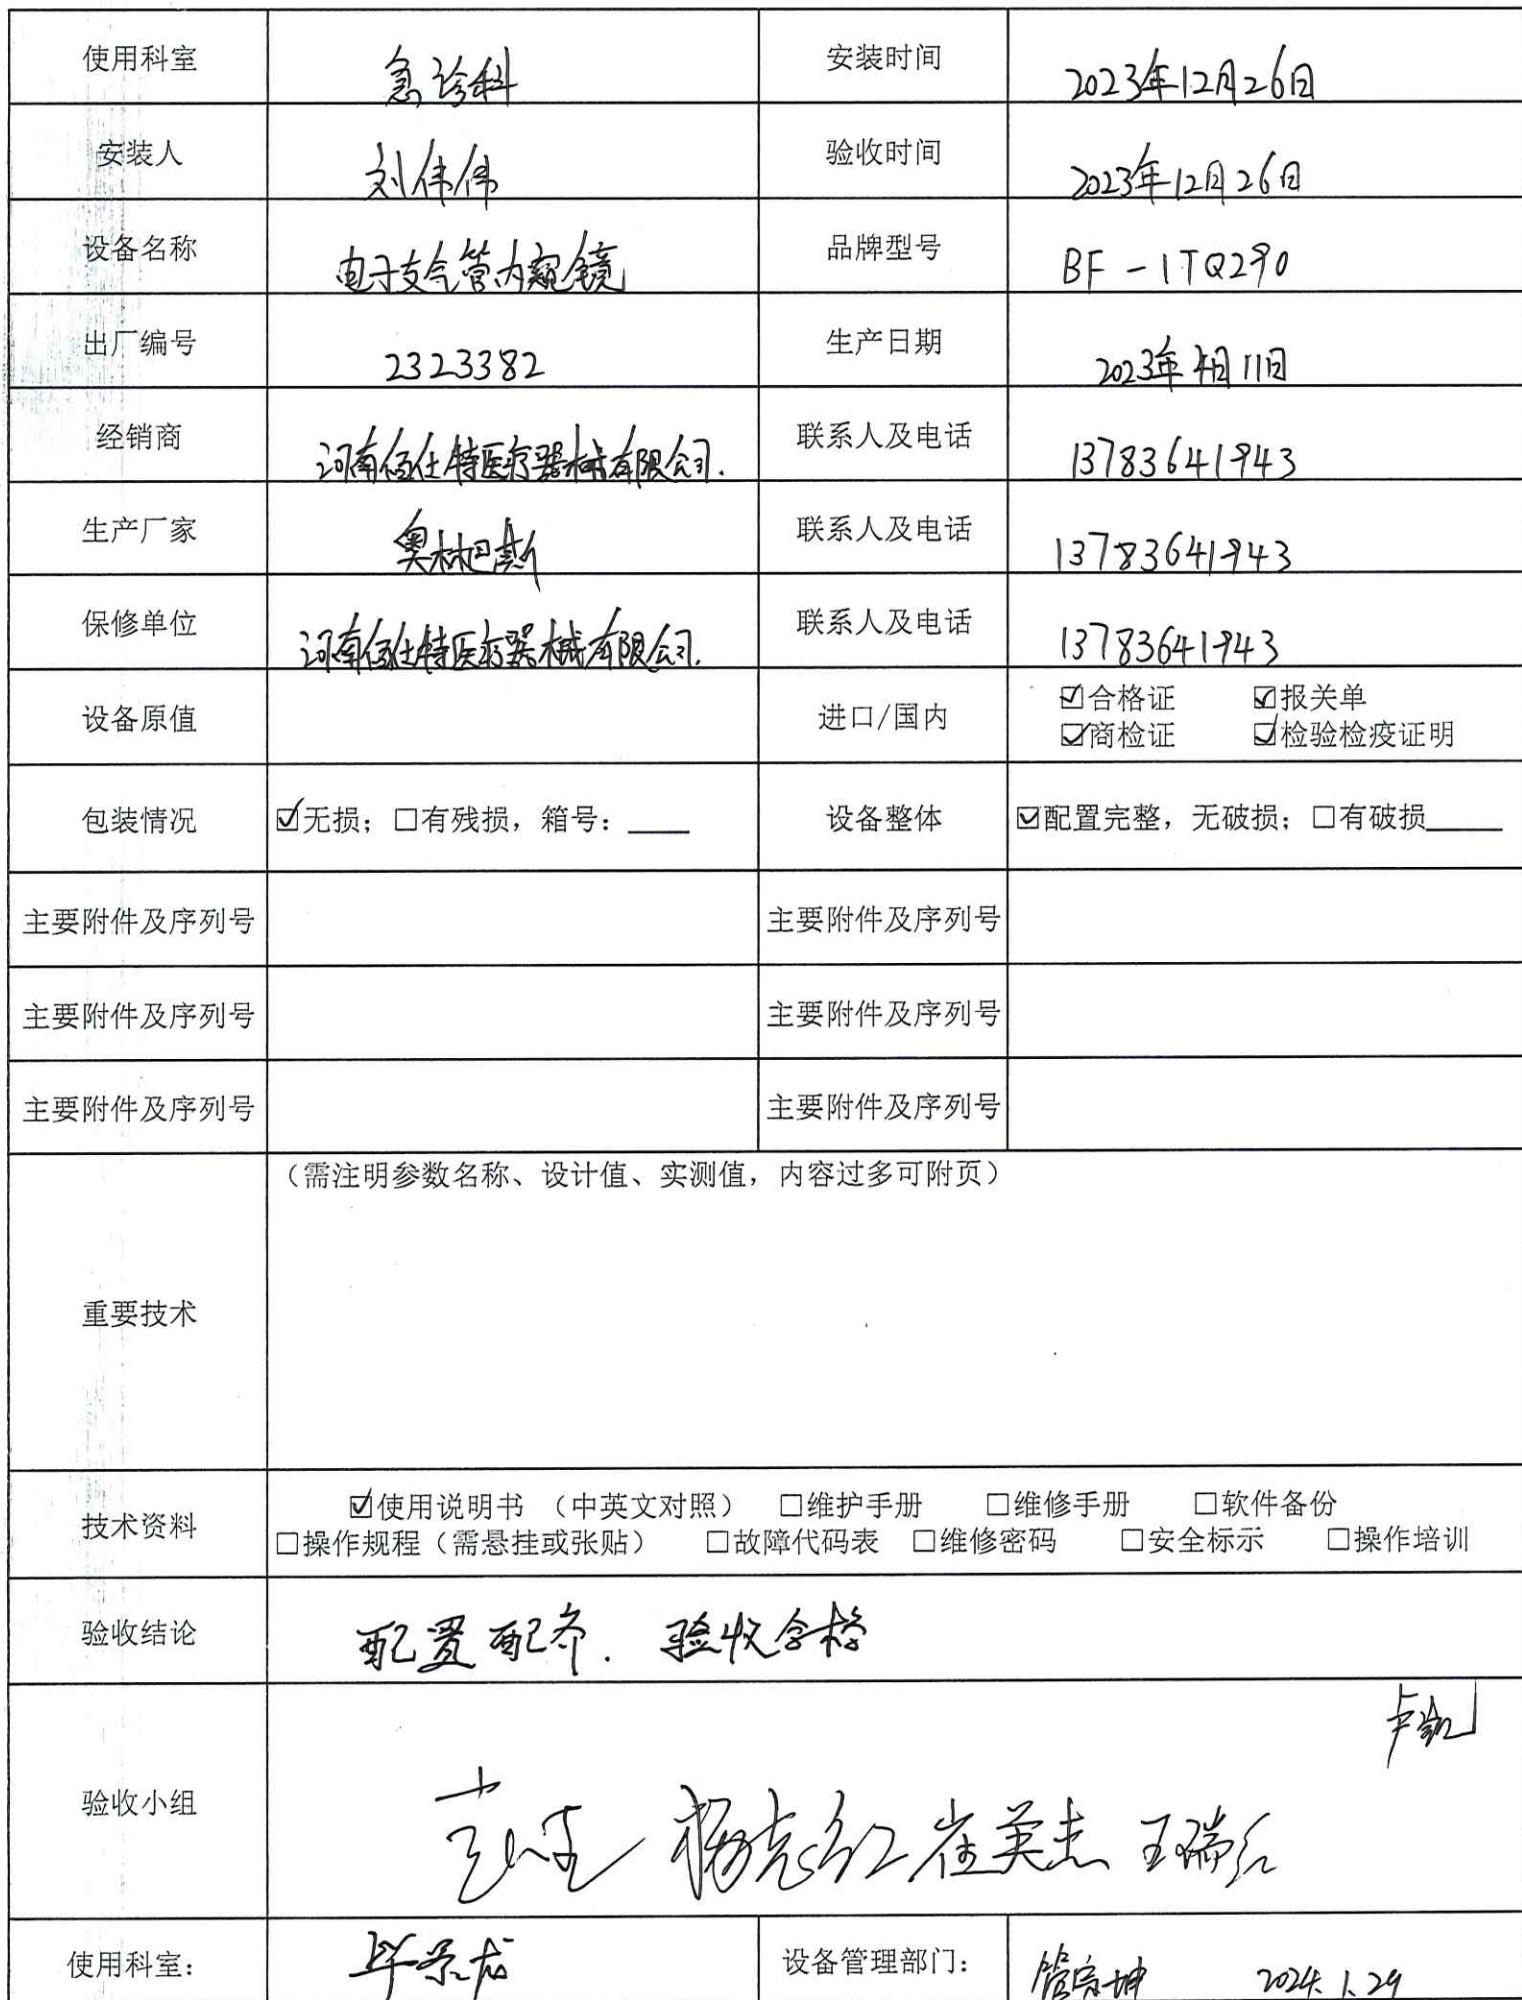 使用科室 急诊科 安装时间 2023年12月26日
安装人 刘伟伟 验收时间 2023年12月26日
设备名称 电子支气管内窥镜 品牌型号 BF-1TQ290
出厂编号 2323382 生产日期 2023年4月11日
经销商 河南佰仕特医疗器械有限公司. 联系人及电话 13783641943
生产厂家 奥林巴斯 联系人及电话 13783641943
保修单位 河南佰仕特医疗器械有限公司. 联系人及电话 13783641943
设备原值 进口/国内 ☑合格证 ☑报关单
☑商检证 ☑检验检疫证明
包装情况 ☑无损；□有残损，箱号：____ 设备整体 ☑配置完整，无破损；□有破损_____
主要附件及序列号 主要附件及序列号
主要附件及序列号 主要附件及序列号
主要附件及序列号 主要附件及序列号
（需注明参数名称、设计值、实测值，内容过多可附页）
重要技术
技术资料 ☑使用说明书 （中英文对照） □维护手册 □维修手册 □软件备份
□操作规程（需悬挂或张贴） □故障代码表 □维修密码 □安全标示 □操作培训
验收结论 配置配齐. 验收合格
卢凯
验收小组 杨克红 崔英杰 王瑞红
使用科室： 设备管理部门： 2024.1.29